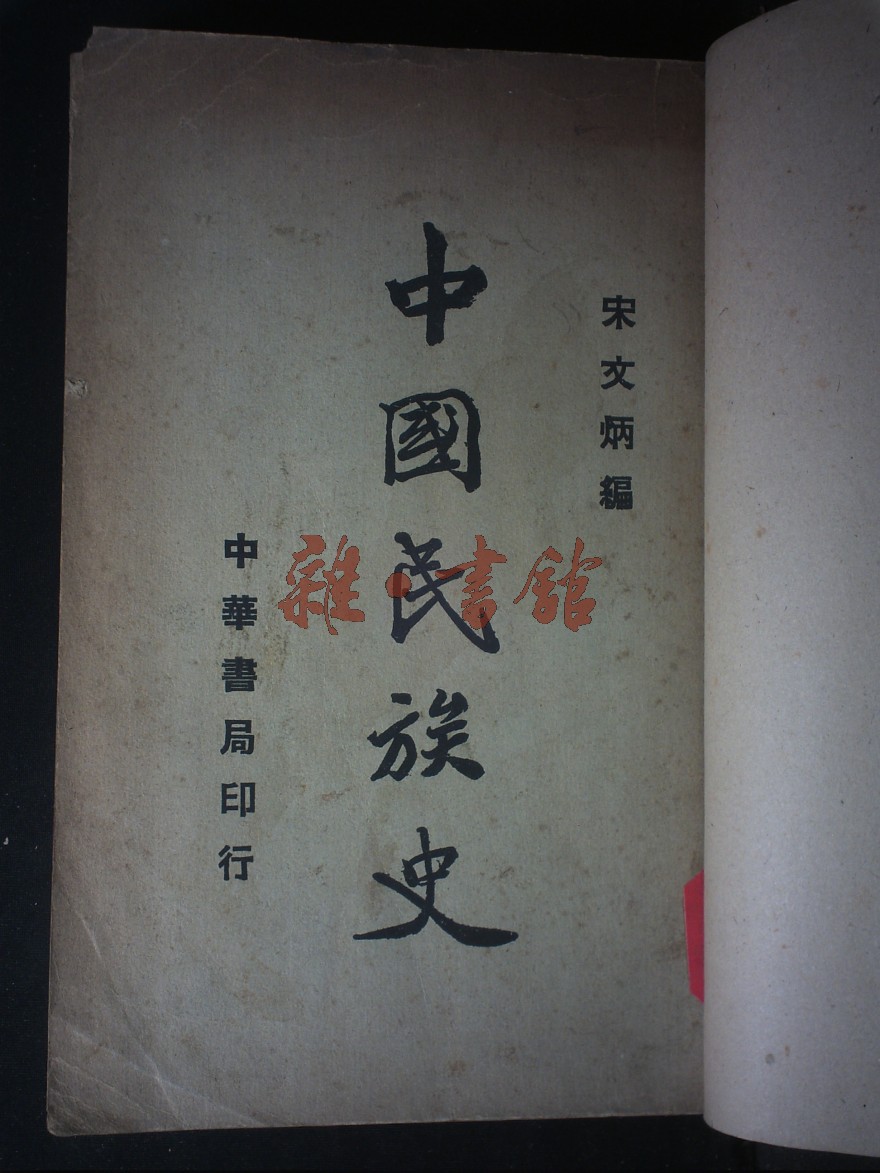 宋文炳編
中國民族史
中華書局印行
雜·書館